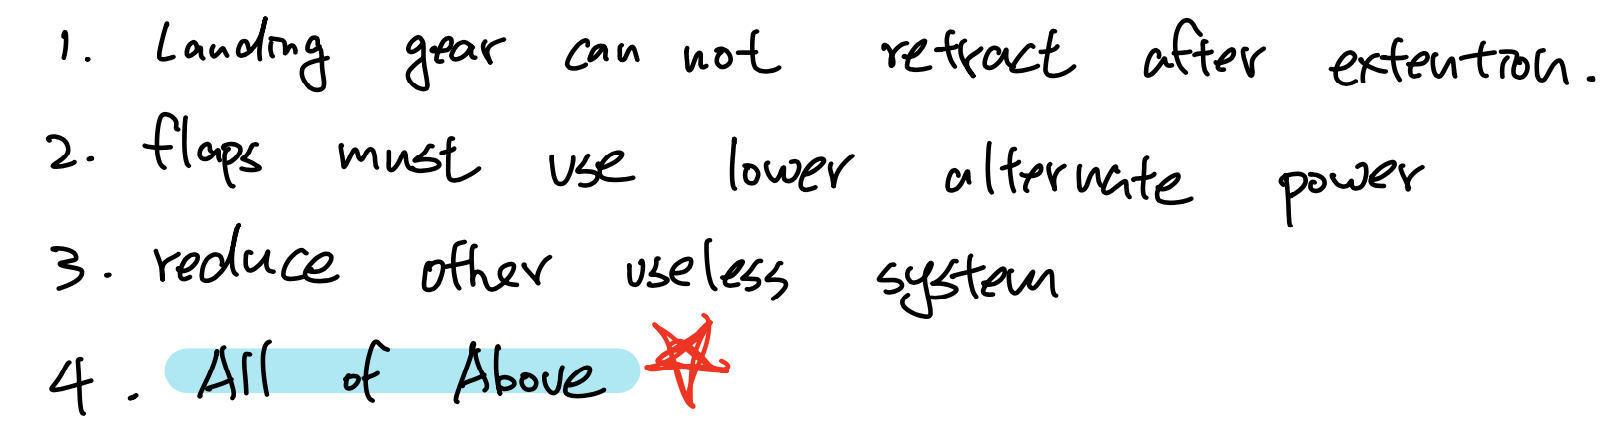 1. Landing gear can not retract after extention.
2. flaps must use lower alternate power
3. reduce other useless system
4. All of Above